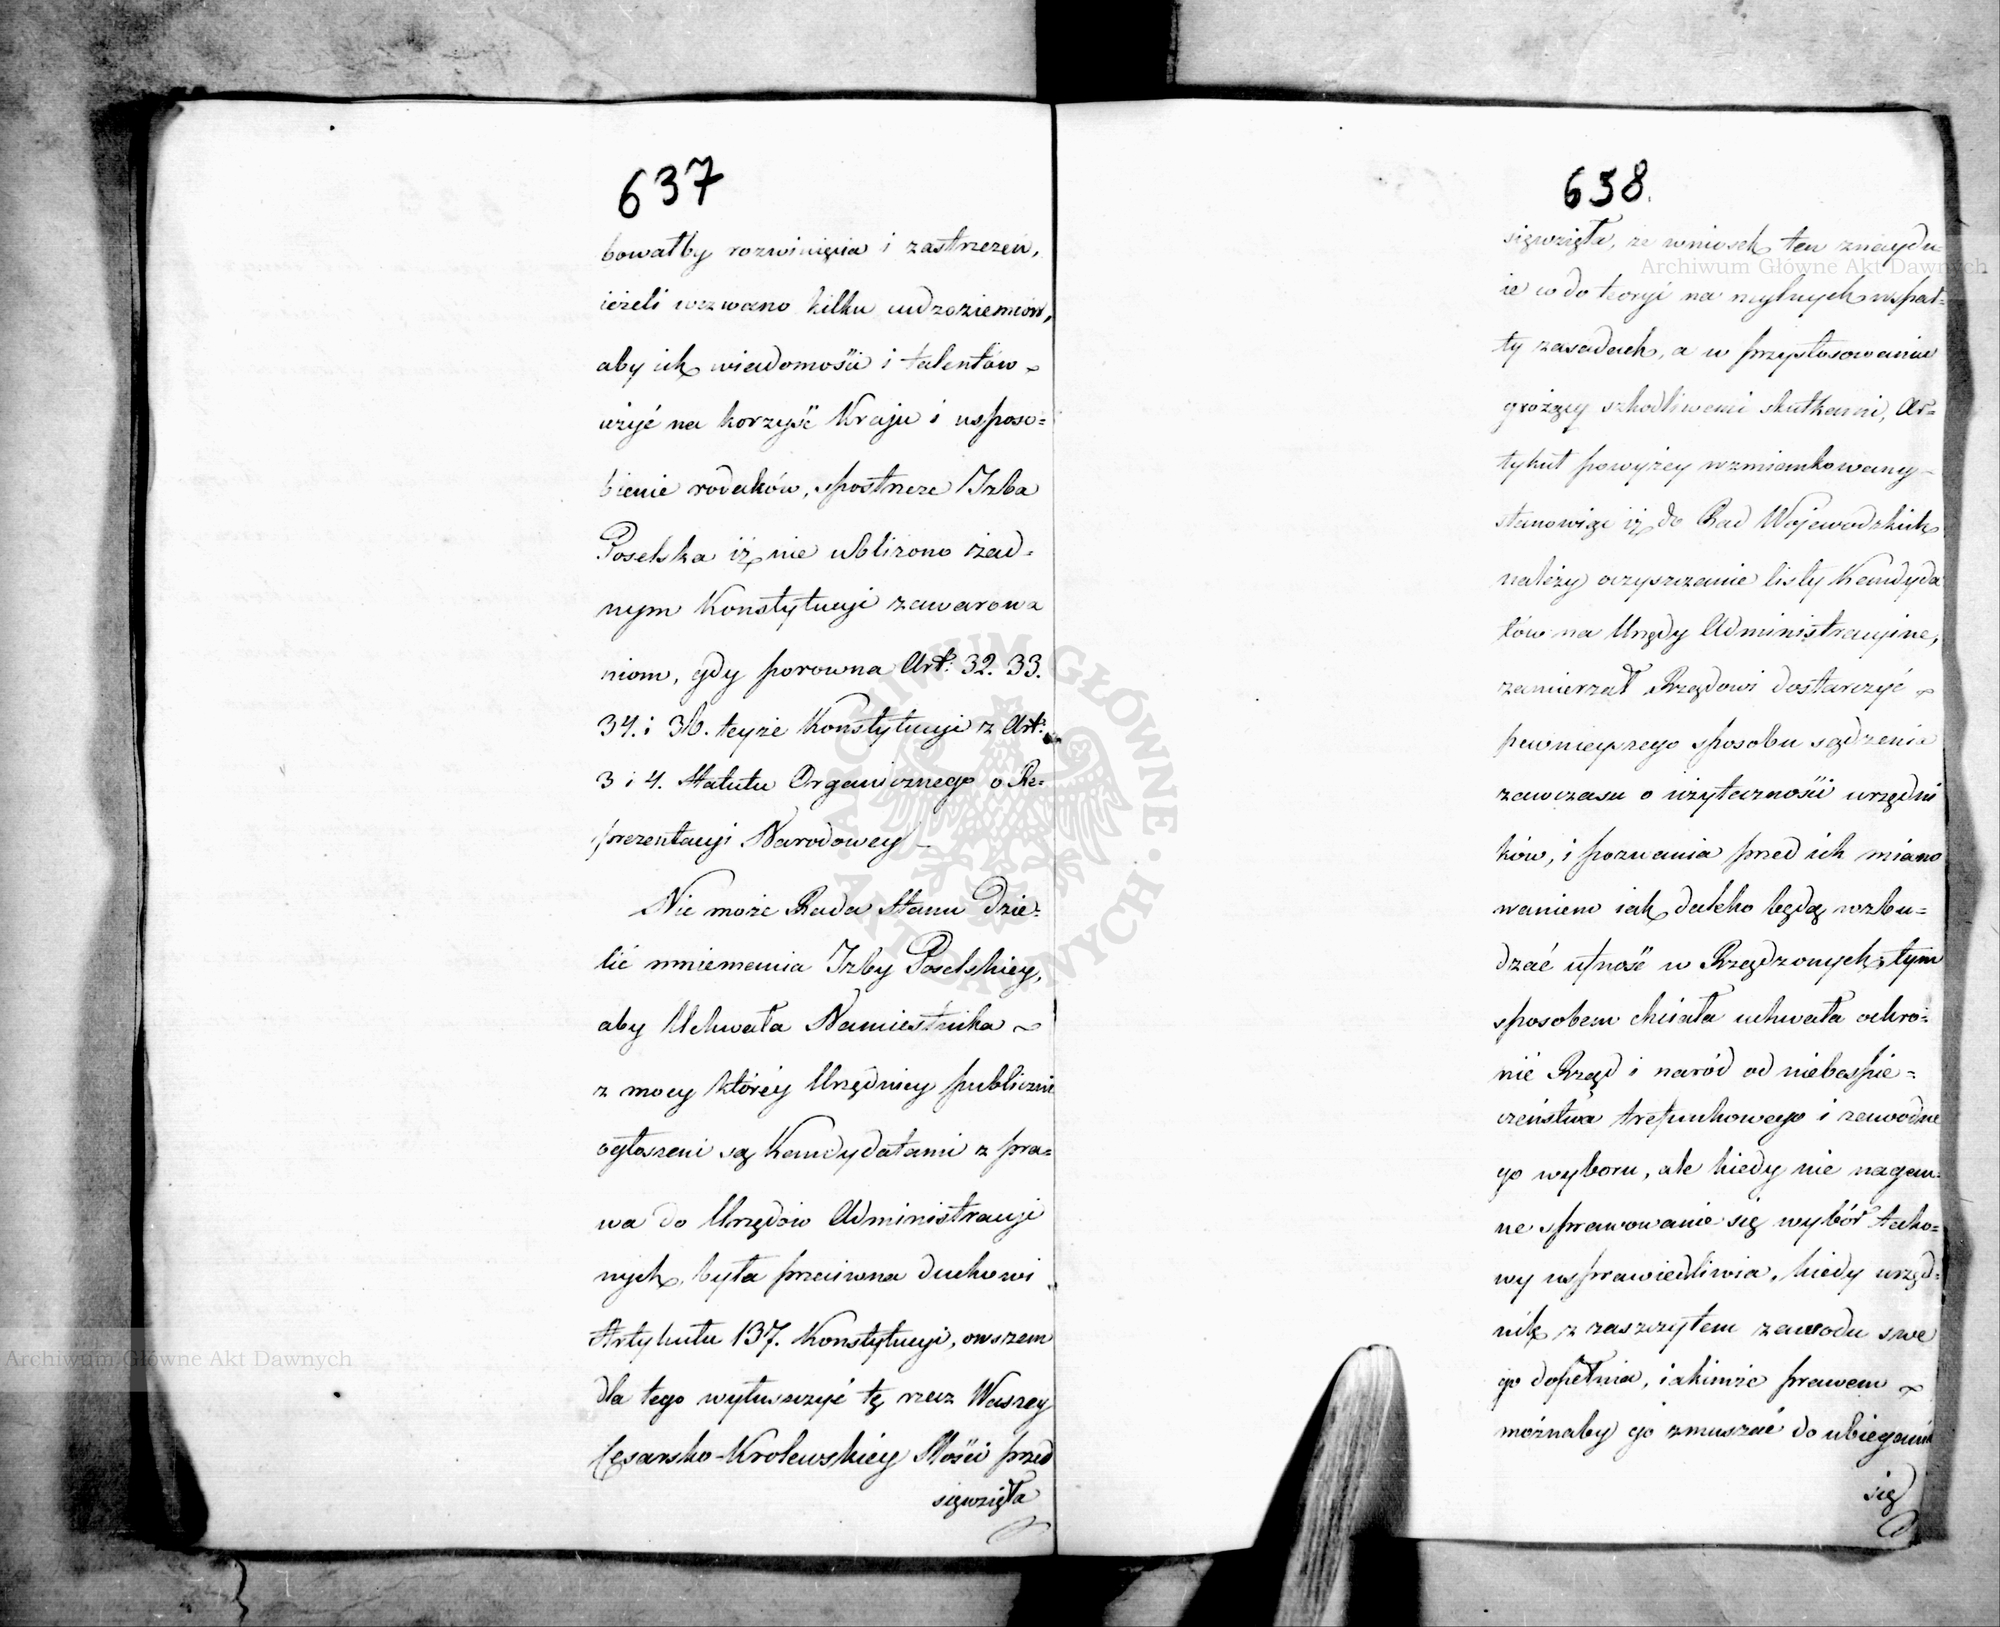 637
bowałby rozwinięcia i zastrzezeń,
ieżeli wezwano kilku cudzoziemców,
aby ich wiadomości i talentów
użyć na korzyść Kraju i usposo=
bienie rodaków, spostrzeże Izba
Poselska iż nie ubliżono żad=
nym Konstytucyi zawarowa
niom, gdy porowna Art: 32. 33.
34. i 36. teyże Konstytucyi z Art:
3 i 4. Statutu Organicznego o Re=
prezentacyi Narodowey
Nie może Rada Stanu dzie=
lić mniemania Izby Poselskiey,
aby Uchwała Namiestnika
z mocy któréy Urzędnicy publiczni
ogłoszeni są Kandydatami z pra=
wa do Urzędów Administracyi
nych, była przeciwna duchowi
Artykułu 137. Konstytucyi, owszem
dla tego wyłuszczyć tę rzecz Waszey
Cesarsko-Krolewskiéy Mości przed
sięwzięła
638.
sięwzięła, że wniosek ten znaydu
ie w do teoryi na mylnych wspar=
ty zasadach, a w przystosowaniu
grożący szkodliwemi skutkami, Ar=
tykuł powyżey wzmiankowany
stanowiąc iż do Rad Wojewodzkich
należy oczyszczanie listy Kandyda
tów na Urzędy Administracyine,
zamierzał Rządowi dostarczyć
pewnieyszego sposobu sądzenia
zawczasu o użyteczności urzędni
ków, i poznania przed ich miano
waniem iak daleko będą wzbu=
dzać ufność w Rządzonych, tym
sposobem chciała uchwała ochro=
nić Rząd i naród od niebespie=
czeństwa trefunkowego i zawodne
go wyboru, ale kiedy nie nagan=
ne sprawowanie się wybór tako=
wy usprawiedliwia, kiedy urzęd=
nik z zaszczytem zawodu swe
go dopełnia, iakimże prawem
możnaby go zmuszać do ubiegania
się
Archiwum Główne Akt Dawnych
Archiwum Główne Akt Dawnych
ARCHIWUM GŁÓWNE · AKT DAWNYCH ·